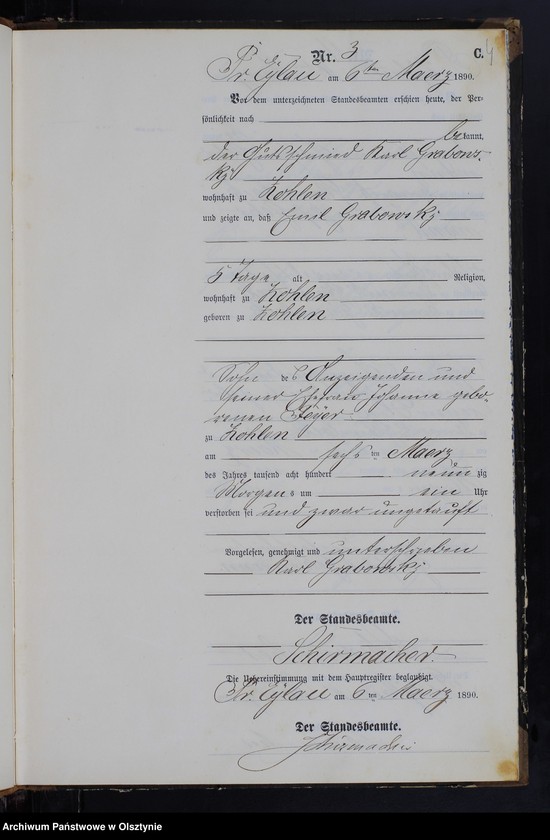 Nr. 3
C. 4
Pr. Eylau am 6ten Maerz 1890.
Vor dem unterzeichneten Standesbeamten erschien heute, der Per-
sönlichkeit nach
bekannt,
der Gutsschmied Karl Grabows-
kj
wohnhaft zu Zohlen
und zeigte an, daß Emil Grabowskj
5 Tage alt Religion,
wohnhaft zu Zohlen
geboren zu Zohlen
Sohn des Anzeigenden und
seiner Ehefrau Johanna gebo-
renen Geyer
zu Zohlen
am sechsten Maerz
des Jahres tausend acht hundert neunzig
Morgens um ein Uhr
verstorben sei und zwar ungetauft
Vorgelesen, genehmigt und unterschrieben
Karl Grabowskj
Der Standesbeamte.
Schirmacher.
Die Uebereinstimmung mit dem Hauptregister beglaubigt.
Pr. Eylau am 6ten Maerz 1890.
Der Standesbeamte.
Schirmacher
Archiwum Państwowe w Olsztynie